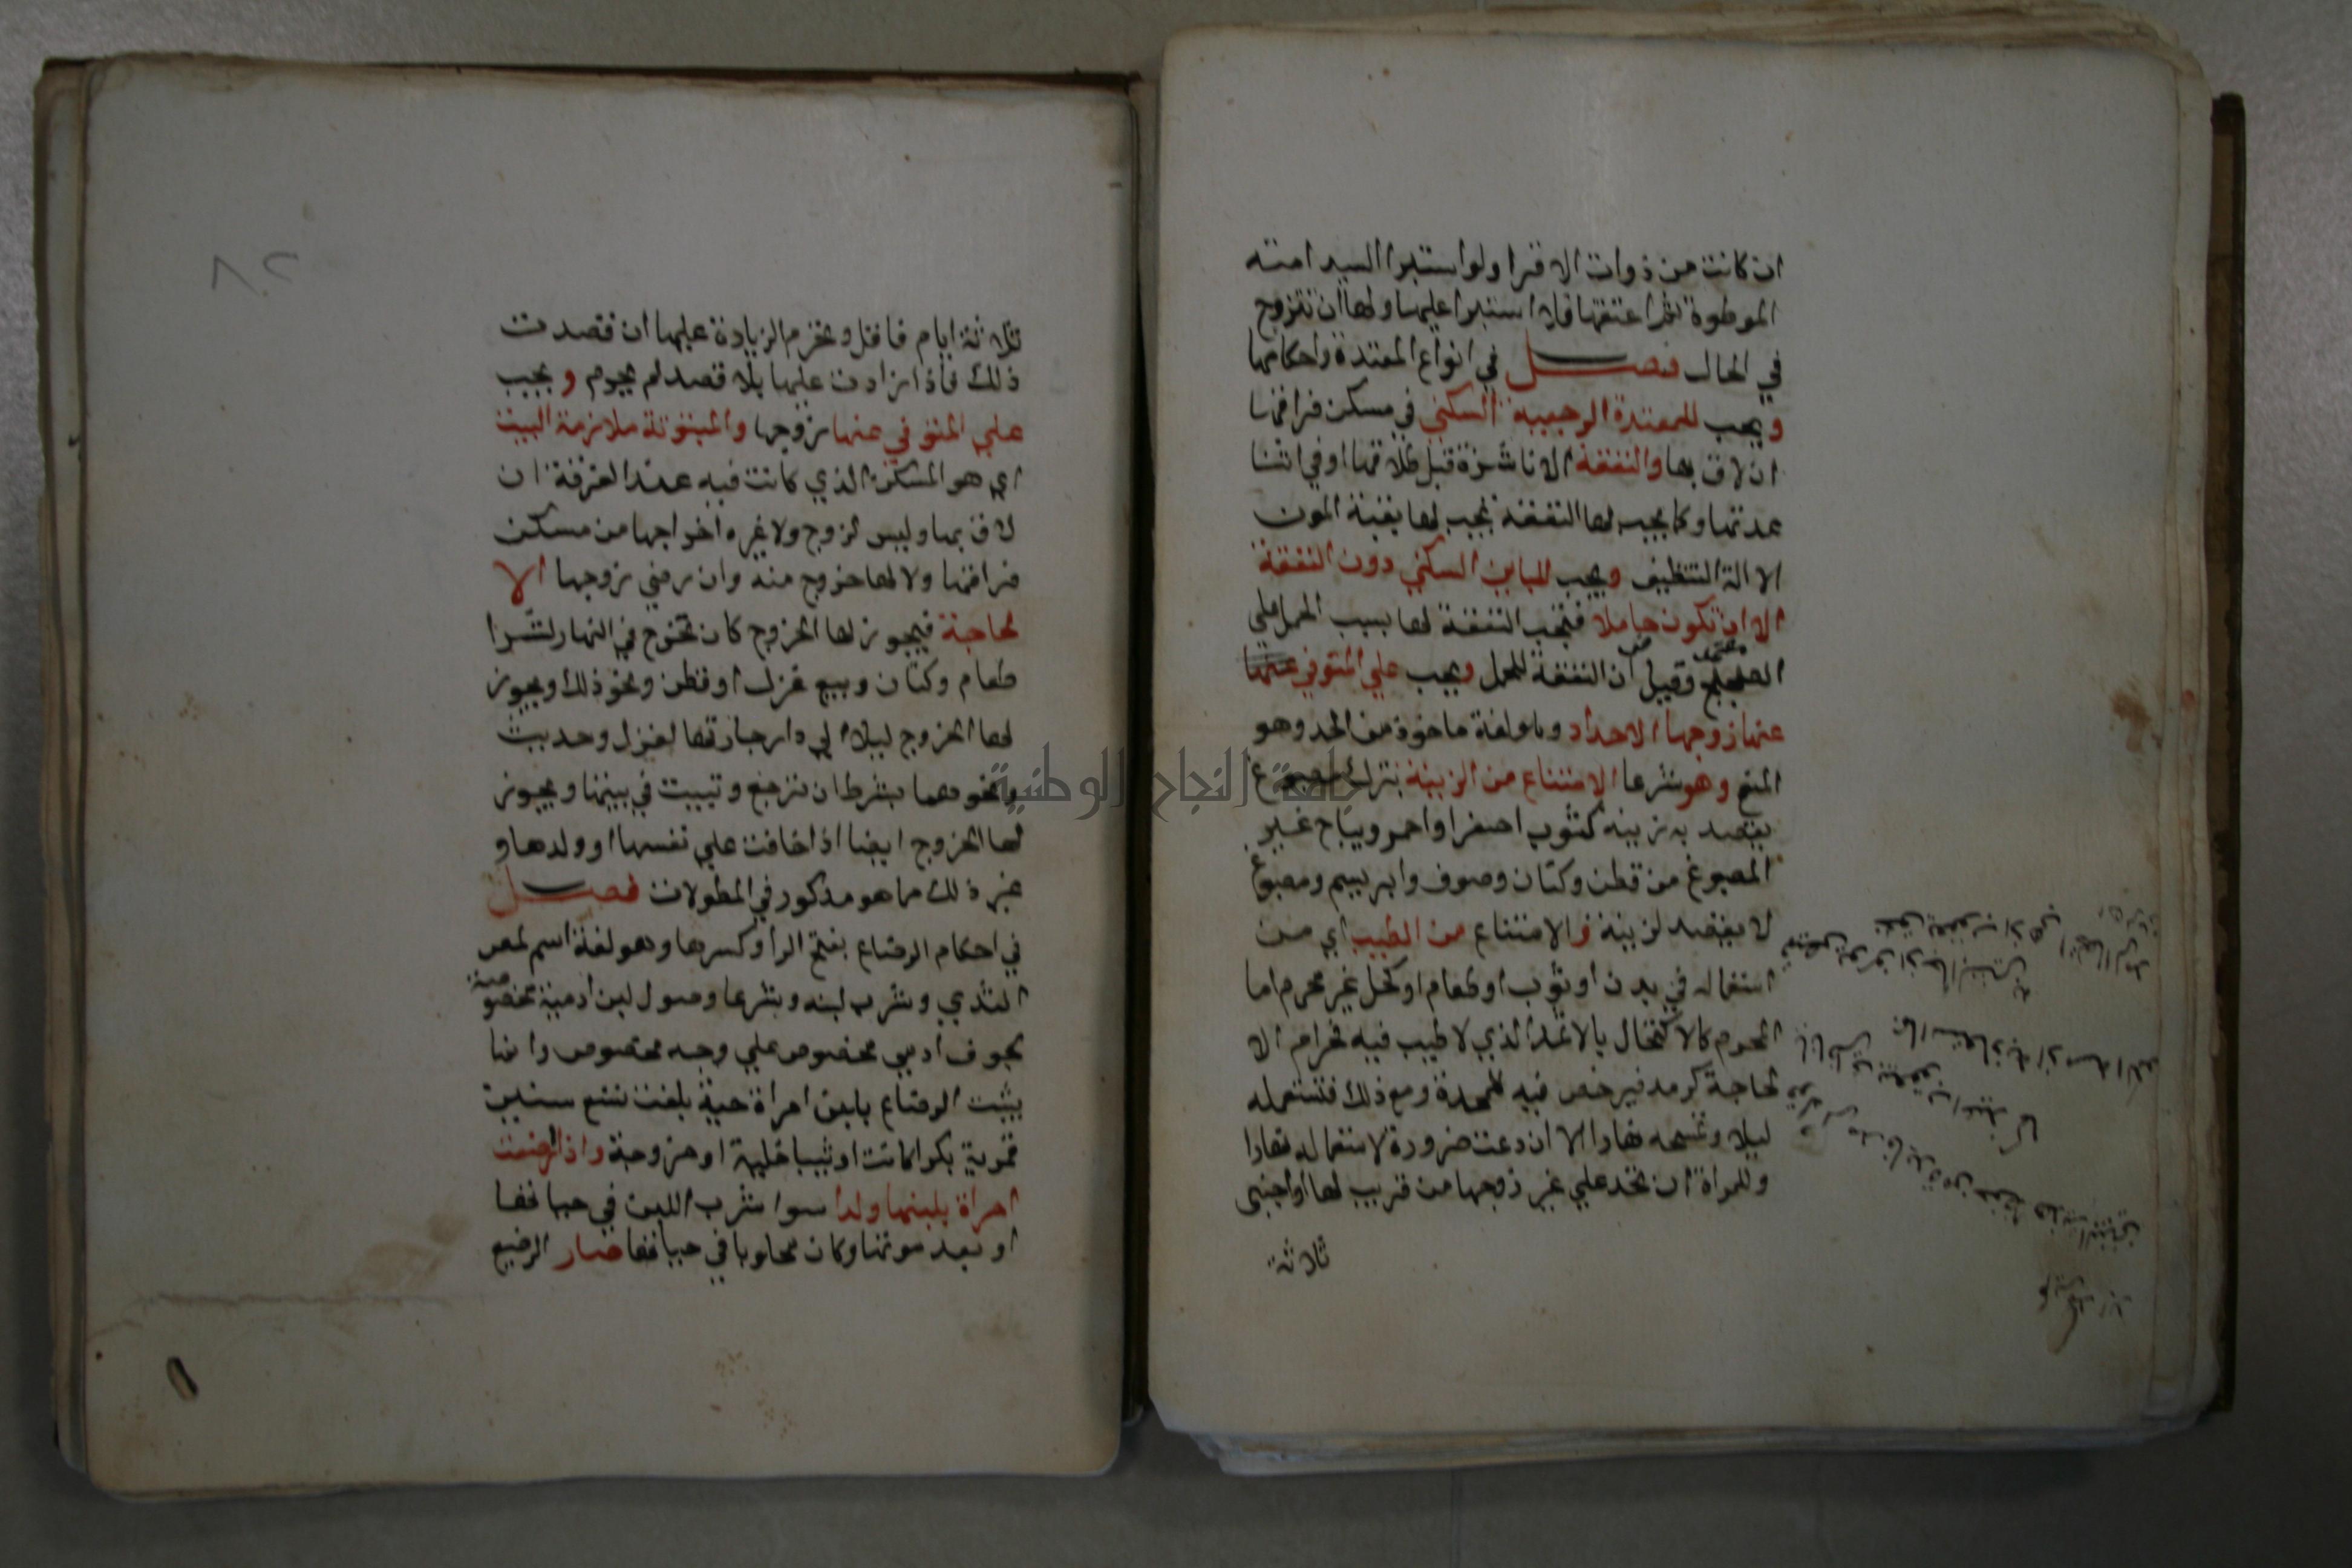 ان كانت من ذوات الاقرا ولو استبرا السيد امته
الموطوة ثم اعتقها فلا استبرا عليها ولها ان تتزوج
في الحال فصل في انواع المعتدة واحكامها
ويجب للمعتدة الرجعية السكني في مسكن فراقها
ان لاق بها والنفقة الا ناشزة قبل طلاقها او في اثنا
عدتها وكما يجب لها النفقة يجب لها بقية المون
الا الة التنظيف ويجب للباين السكني دون النفقة
الا ان تكون حاملا فتجب النفقة لها بسبب الحمل علي
الصحيح وقيل ان النفقة للحمل ويجب علي المتوفي عنها
عنها زوجها الاحداد وهو لغة ماخوذ من الحد وهو
المنع وهو شرعا الامتناع من الزينة بترك لبس مصبوغ
يقصد به زينه كثوب اصفر او احمر ويباح غير
المصبوغ من قطن وكتان وصوف وابريسم ومصبوغ
لا يقصد لزينة والامتناع من الطيب اي من
استعماله في بدن او ثوب او طعام او كحل غير محرم اما
المحرم كالاكتحال بالاثمد الذي لا طيب فيه فحرام الا
لحاجة كرمد فيرخص فيه للمحدة ومع ذلك فتستعمله
ليلا وتمسحه نهارا الا ان دعت ضرورة لاستعماله نهارا
وللمراة ان تحد علي غير زوجها من قريب لها او اجنبي
ثلاثة
ثلاثة ايام فاقل وتحرم الزيادة عليها ان قصدت
ذلك فاذا زادت عليها بلا قصد لم يحرم و يجب
علي المتوفي عنها زوجها والمبتوتة ملازمة البيت
اي هو المسكن الذي كانت فيه عند الفرقة ان
لاق بها وليس لزوج ولا غيره اخراجها من مسكن
فراقها ولا لها خروج منه وان رضي زوجها الا
لحاجة فيجوز لها الخروج كان تخرج في النهار لشرا
طعام وكتان وبيع غزل او قطن ونحو ذلك ويجوز
لها الخروج ليلا الي دار جارتها لغزل وحديث
ونحوهما بشرط ان ترجع وتبيت في بيتها ويجوز
لها الخروج ايضا اذا خافت علي نفسها او ولدها و
غير ذلك مما هو مذكور في المطولات فصل
في احكام الرضاع بفتح الرا وكسرها وهو لغة اسم لمص
الثدي وشرب لبنه وشرعا وصول لبن ادمية مخصوصة
لجوف ادمي مخصوص علي وجه مخصوص وانما
يثبت الرضاع بلبن امراة حية بلغت تسع سنين
قمرية بكرا كانت او ثيبا خلية او مزوجة واذا ارضعت
امراة بلبنها ولدا سوا شرب اللبن في حياتها
او بعد موتها وكان محلوبا في حياتها صار الرضيع
جامعة النجاح الوطنية